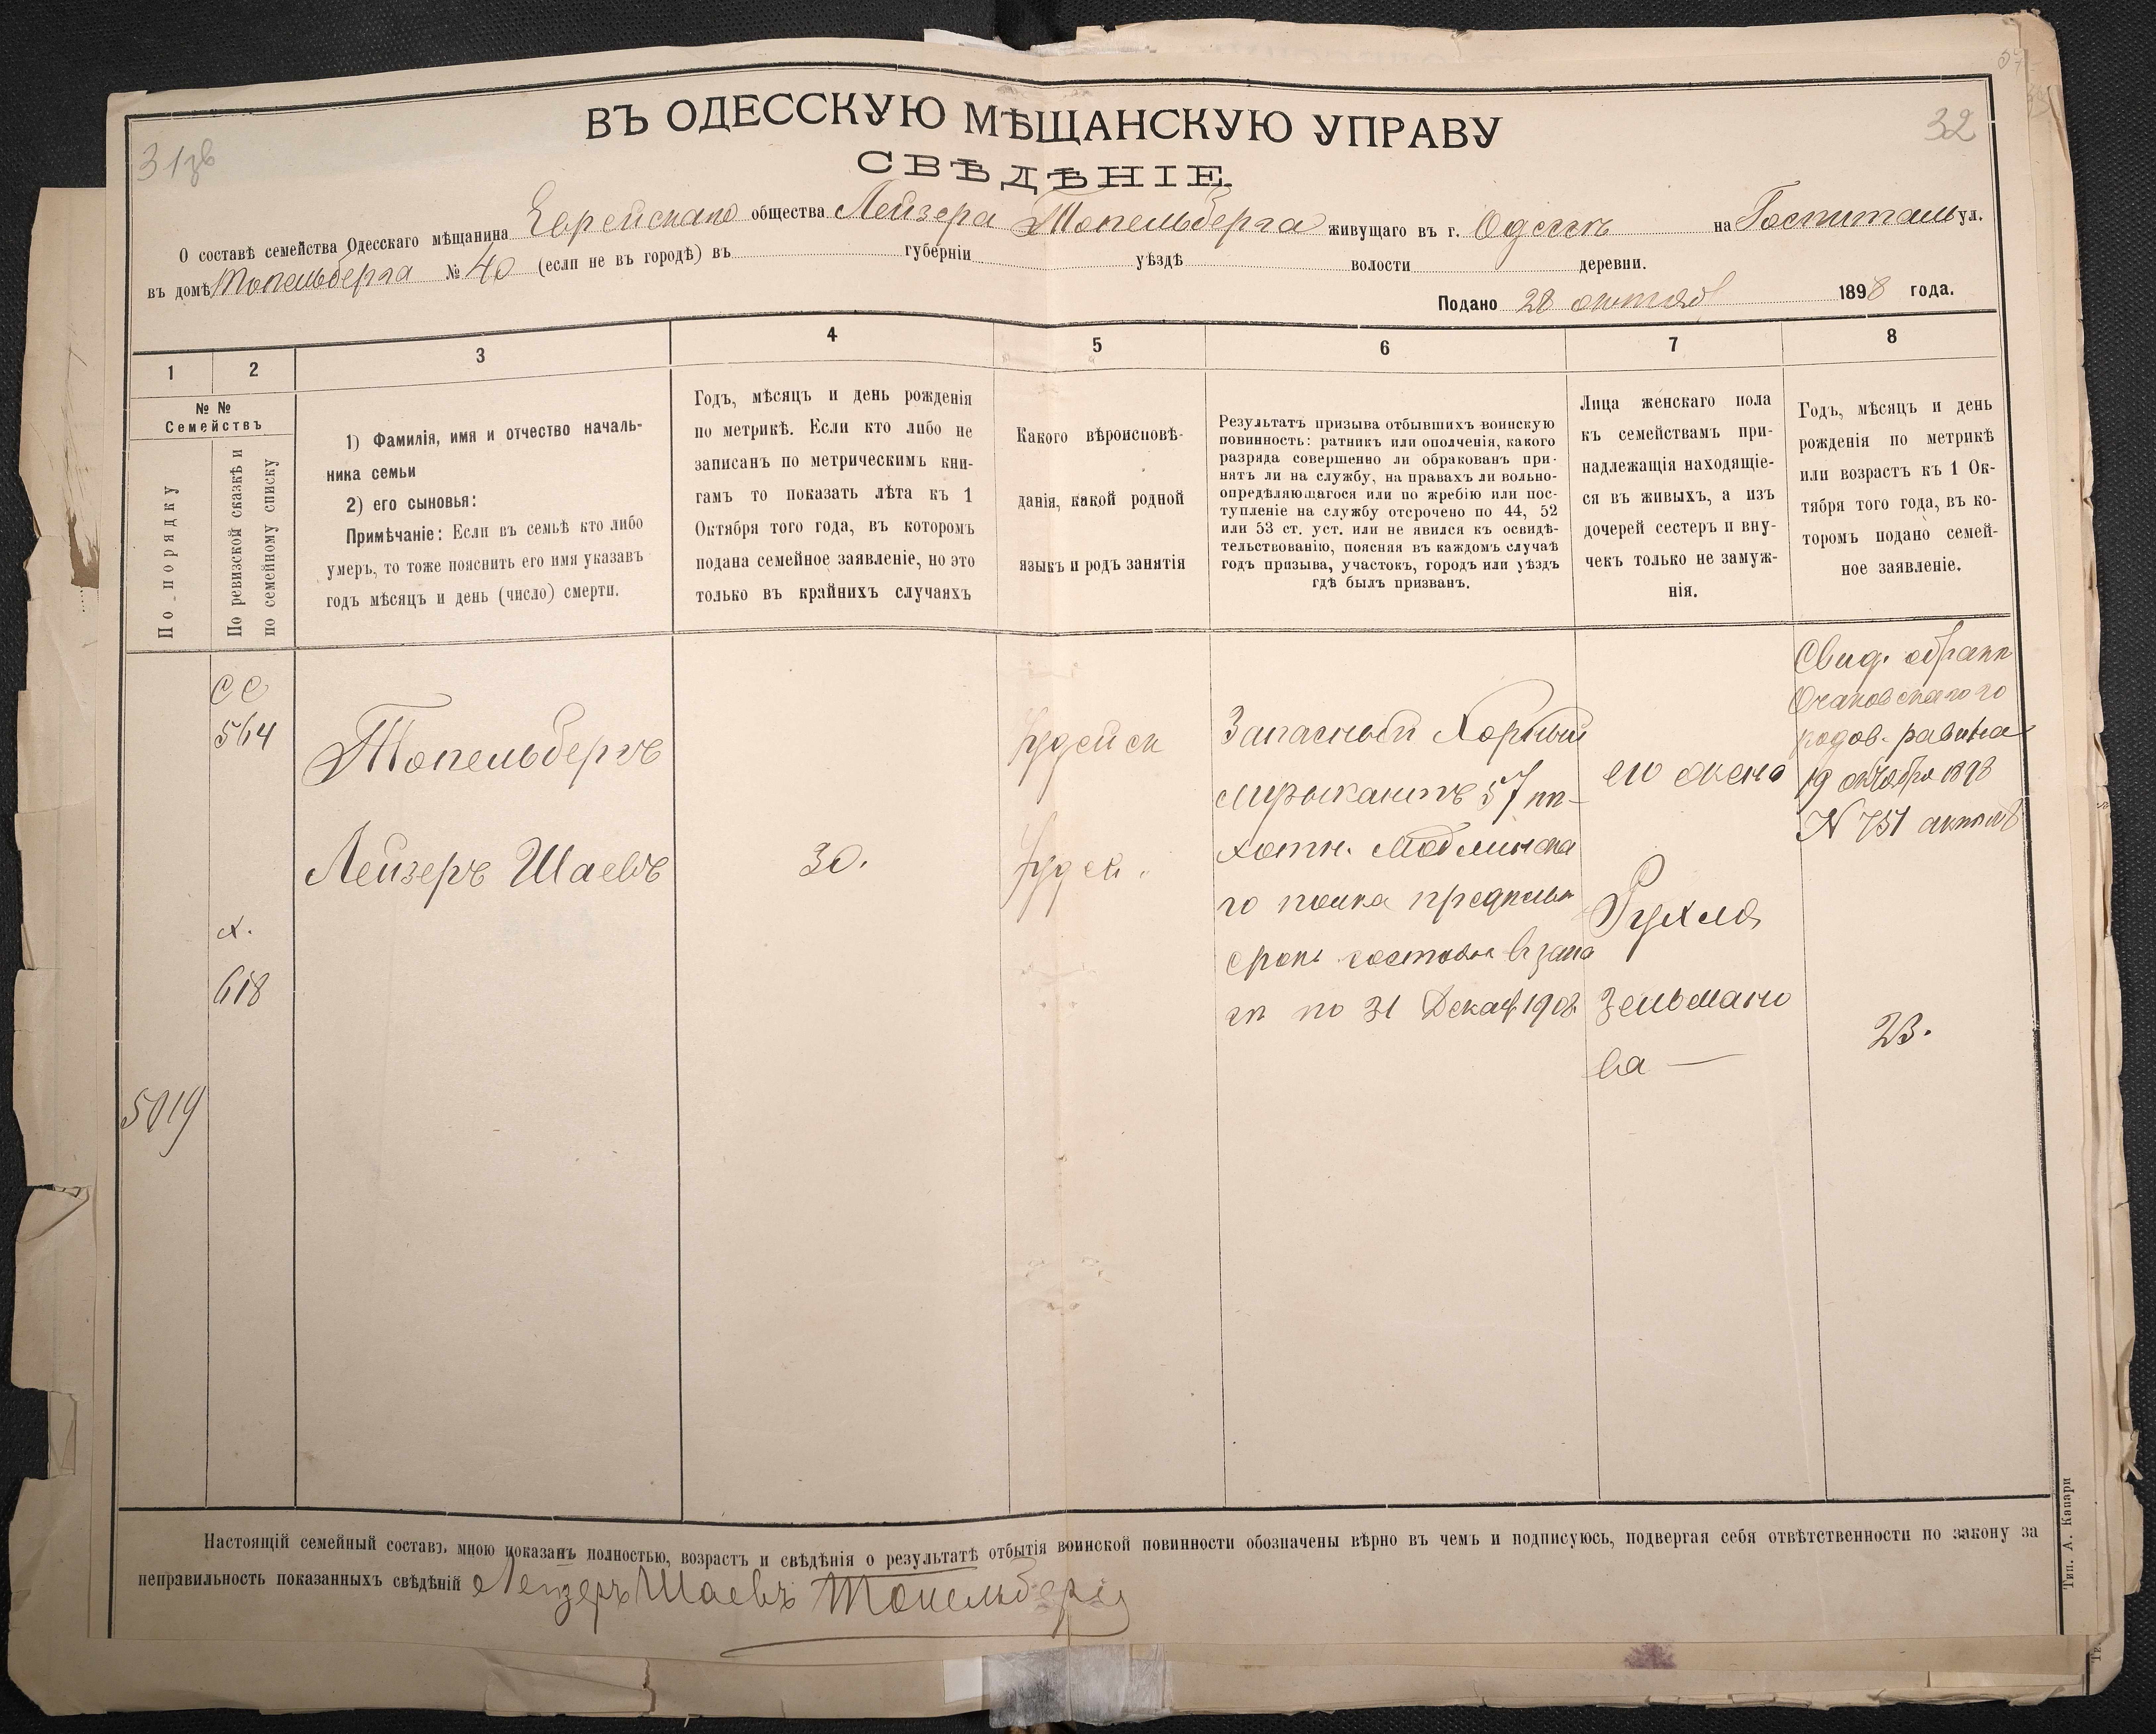 ВЪ ОДЕССКУЮ МѢЩАНСКУЮ УПРАВУ
32
31
СВѢДѢНІЕ.
О составѣ семейства Одесскаго мѣщанина Еврейскаго общества Лейзера Топельберга живущаго въ г. Одессѣ на Госпиталь ул.
въ домѣ Топельберга № 40 (если не въ городѣ) въ губерніи уѣздѣ волости деревни.
Подано 28 октяб 1898 года.
1 2 3 4 5 6 7 8
№ №
Семействъ
По порядку
По ревизской сказкѣ и
по семейному списку
1) Фамилія, имя и отчество началь-
ника семьи
2) его сыновья:
Примѣчаніе: Если въ семьѣ кто либо
умеръ, то тоже пояснить его имя указавъ
годъ мѣсяцъ и день (число) смерти.
Годъ, мѣсяцъ и день рожденія
по метрикѣ. Если кто либо не
записанъ по метрическимъ кни-
гамъ то показать лѣта къ 1
Октября того года, въ которомъ
подана семейное заявленіе, но это
только въ крайнихъ случаяхъ
Какого вѣроисповѣ-
данія, какой родной
языкъ и родъ занятія
Результатъ призыва отбывшихъ воинскую
повинность: ратникъ или ополченія, какого
разряда совершенно ли обракованъ при-
нятъ ли на службу, на правахъ ли вольно-
опредѣляющагося или по жребію или пос-
тупленіе на службу отсрочено по 44, 52
или 53 ст. уст. или не явился къ освидѣ-
тельствованію, поясняя въ каждомъ случаѣ
годъ призыва, участокъ, городъ или уѣздъ
гдѣ былъ призванъ.
Лица женскаго пола
къ семействамъ при-
надлежащія находящіе-
ся въ живыхъ, а изъ
дочерей сестеръ и вну-
чекъ только не замуж-
нія.
Годъ, мѣсяцъ и день
рожденія по метрикѣ
или возрастъ къ 1 Ок-
тября того года, въ ко-
торомъ подано семей-
ное заявленіе.
СС
564
х.
618
5019
Топельбергъ
Лейзеръ Шаевъ
30.
Іудейск
Іудей.
Запасный Хорный
музыкантъ 57 пѣ-
хотн. Модлинска
го полка
срокъ въ запа
сѣ по 31 Декаб 1908
его жена
Рухля
Зельмано
ва —
Свид. о бракѣ
Очаковскаго го
родов. равина
19 октября 1898
N 751
23.
Настоящій семейный составъ мною показанъ полностью, возрастъ и свѣдѣнія о результатѣ отбытія воинской повинности обозначены вѣрно въ чемъ и подписуюсь, подвергая себя отвѣтственности по закону за
неправильность показанныхъ свѣдѣній Лейзеръ Шаевъ Топельбергъ
Тип. А. Капари